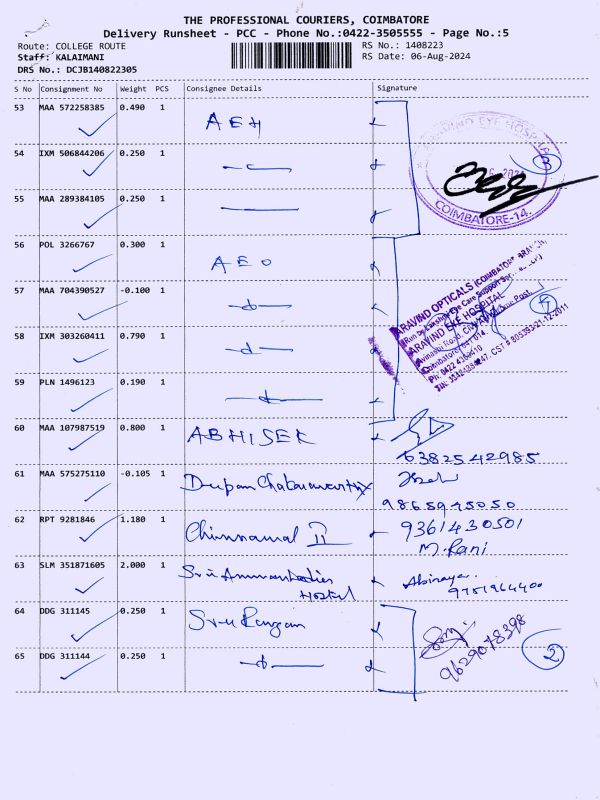 THE PROFESSIONAL COURIERS, COIMBATORE
Delivery Runsheet - PCC - Phone No.:0422-3505555 - Page No.:5
Route: COLLEGE ROUTE
RS No.: 1408223
Staff: KALAIMANI
RS Date: 06-Aug-2024
DRS No.: DCJB140822305
S No Consignment No Weight PCS Consignee Details Signature
53 MAA 572258385 0.490 1 AEH
ARAVIND EYE HOSPITAL
54 IXM 506844206 0.250 1
3
55 MAA 289384105 0.250 1
COIMBATORE-14.
56 POL 3266767 0.300 1 AEO
57 MAA 704390527 -0.100 1
ARAVIND OPTICALS (COIMBATORE
ARAVIND EYE HOSPITAL
58 IXM 303260411 0.790 1
59 PLN 1496123 0.190 1
60 MAA 107987519 0.800 1 ABHISEK
6382542985
61 MAA 575275110 -0.105 1 Deepan Chakaravarthy
9865945050
62 RPT 9281846 1.180 1 Chinnamal II 9361430501
M.Rani
63 SLM 351871605 1.000 1 Sri Hostel Abinaya
9751964400
64 DDG 311145 0.250 1 Sri Rangam
9629078398
65 DDG 311144 0.250 1
2